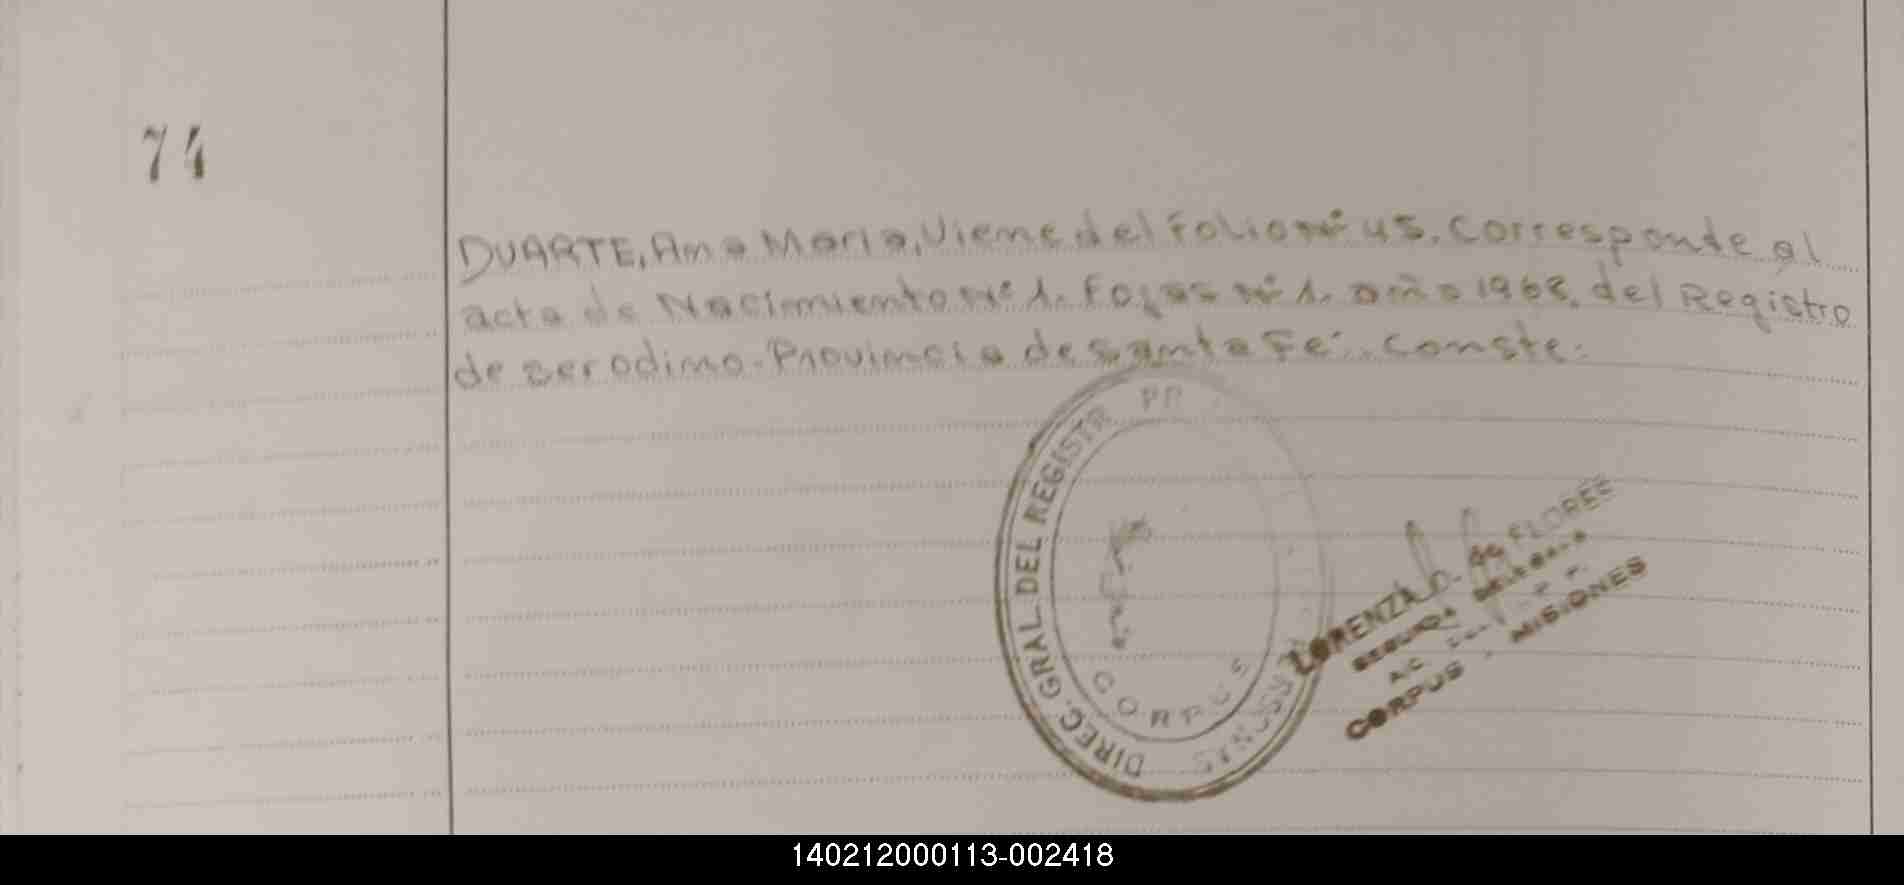 74
DUARTE, Ana Maria, Viene del folio Nº 45. Corresponde al
acta de Nacimiento Nº 1. Fojas Nº 1. año 1968. del Registro
de serodimo. Provincia de santa Fe. conste.
DIREC. GRAL. DEL REGISTR PR PERSONAS
CORPUS
LORENZA de FLORES
SEGUNDA
CORPUS - MISIONES
140212000113-002418